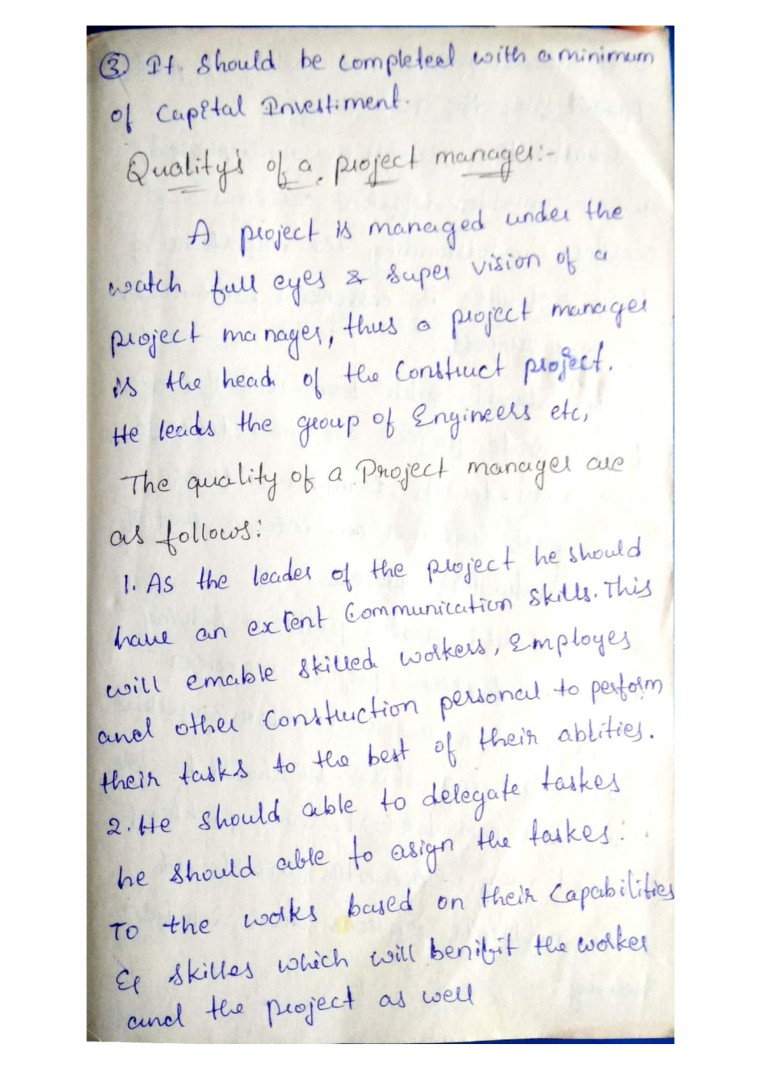 ③ It. Should be completeed with a minimum
of Capital Investiment.
Quality's of a project manager:-
A project is managed under the
watch full eyes & super vision of a
project ma nager, thus a project manager
is the head of the Construct project.
He leads the group of Engineers etc,
The quality of a Project manager are
as follows:
1. As the leader of the project he should
have an extent Communication Skills. This
will emable skilled workers, Employes
and other Construction personal to perform
their tasks to the best of their ablities.
2. He should able to delegate taskes
he should able to asign the taskes.
To the works based on their Capabilities
& skilles which will benifit the worker
and the project as well